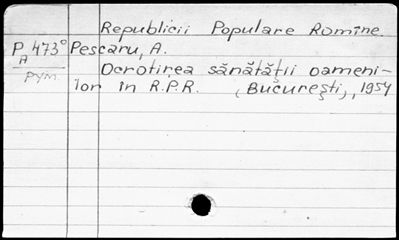 Republicii Populare Romîne.
P 473° Pescaru, A.
A
рум.
Ocrotirea sănătăţii oameni-
lor în R.P.R. (Bucureşti), 1954